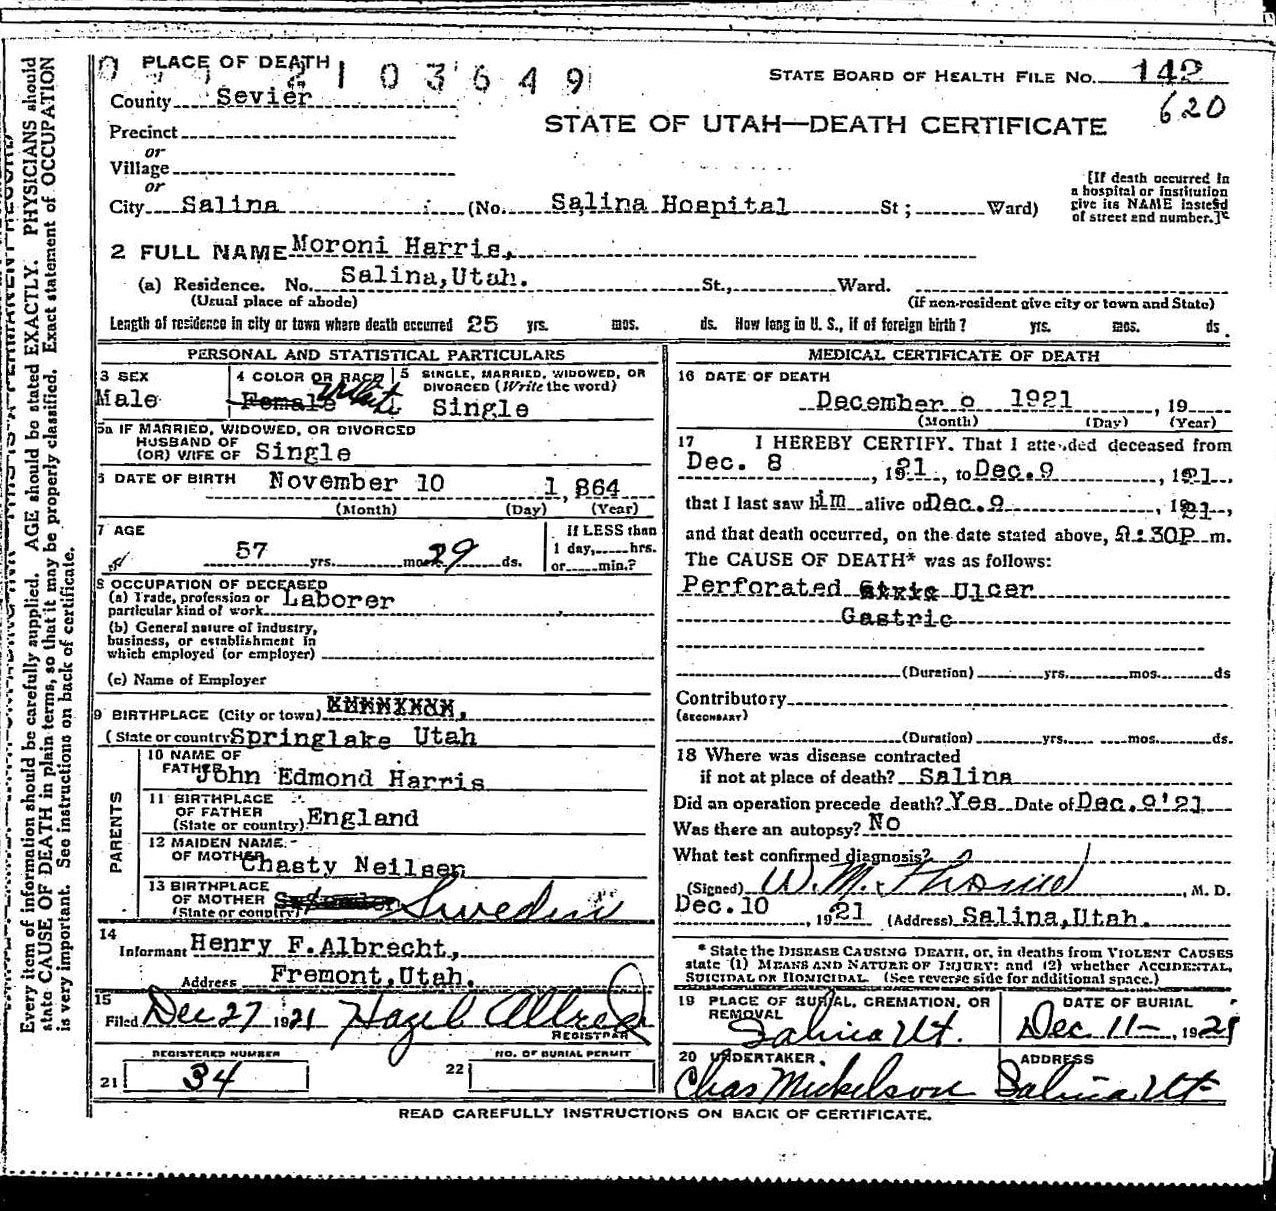 PLACE OF DEATH
2103649
STATE BOARD OF HEALTH FILE NO. 142
620
County Sevier
STATE OF UTAH—DEATH CERTIFICATE
Precinct
or
Village
or
City Salina (No. Salina Hospital St; Ward)
[If death occurred in
a hospital or institution
give its NAME instead
of street and number.]
2 FULL NAME Moroni Harris,
(a) Residence. No. Salina, Utah. St., Ward.
(Usual place of abode) (if non-resident give city or town and State)
Length of residence in city or town where death occurred 25 yrs. mos. ds. How long in U. S., if of foreign birth? yrs. mos. ds.
PERSONAL AND STATISTICAL PARTICULARS
3 SEX
Male
4 COLOR OR RACE
Female White
5 SINGLE, MARRIED, WIDOWED, OR
DIVORCED (Write the word)
Single
5a IF MARRIED, WIDOWED, OR DIVORCED
HUSBAND OF
(OR) WIFE OF Single
6 DATE OF BIRTH November 10 1,864
(Month) (Day) (Year)
7 AGE
57 yrs. mos. 29 ds.
If LESS than
1 day, hrs.
or min.?
8 OCCUPATION OF DECEASED
(a) Trade, profession or
particular kind of work Laborer
(b) General nature of industry,
business, or establishment in
which employed (or employer)
(c) Name of Employer
9 BIRTHPLACE (City or town)
(State or country) Springlake Utah
PARENTS
10 NAME OF
FATHER John Edmond Harris
11 BIRTHPLACE
OF FATHER
(State or country) England
12 MAIDEN NAME
OF MOTHER Chasty Neilsen
13 BIRTHPLACE
OF MOTHER
(State or country) Sweden
14
Informant Henry F. Albrecht,
Address Fremont, Utah.
15
Filed Dec 27 1921 Hazel Allred
REGISTRAR
REGISTERED NUMBER
21 34
NO. OF BURIAL PERMIT
22
MEDICAL CERTIFICATE OF DEATH
16 DATE OF DEATH
December 9 1921, 19
(Month) (Day) (Year)
17 I HEREBY CERTIFY. That I attended deceased from
Dec. 8, 1921, to Dec. 9, 1921,
that I last saw him alive on Dec. 9, 1921,
and that death occurred, on the date stated above, :30P m.
The CAUSE OF DEATH* was as follows:
Perforated Ulcer
Gastric
(Duration) yrs. mos. ds
Contributory
(SECONDARY)
(Duration) yrs. mos. ds.
18 Where was disease contracted
if not at place of death? Salina
Did an operation precede death? Yes Date of Dec. 9'21
Was there an autopsy? No
What test confirmed diagnosis?
(Signed) W. M., M. D.
Dec. 10, 1921 (Address) Salina, Utah.
* State the DISEASE CAUSING DEATH, or, in deaths from VIOLENT CAUSES
state (1) MEANS AND NATURE OF INJURY; and (2) whether ACCIDENTAL,
SUICIDAL OR HOMICIDAL. (See reverse side for additional space.)
19 PLACE OF BURIAL, CREMATION, OR
REMOVAL
Salina Ut.
DATE OF BURIAL
Dec 11-, 1921
20 UNDERTAKER,
Chas Mickelson
ADDRESS
Salina, Ut
READ CAREFULLY INSTRUCTIONS ON BACK OF CERTIFICATE.
Every item of information should be carefully supplied. AGE should be stated EXACTLY. PHYSICIANS should
state CAUSE OF DEATH in plain terms, so that it may be properly classified. Exact statement of OCCUPATION
is very important. See instructions on back of certificate.